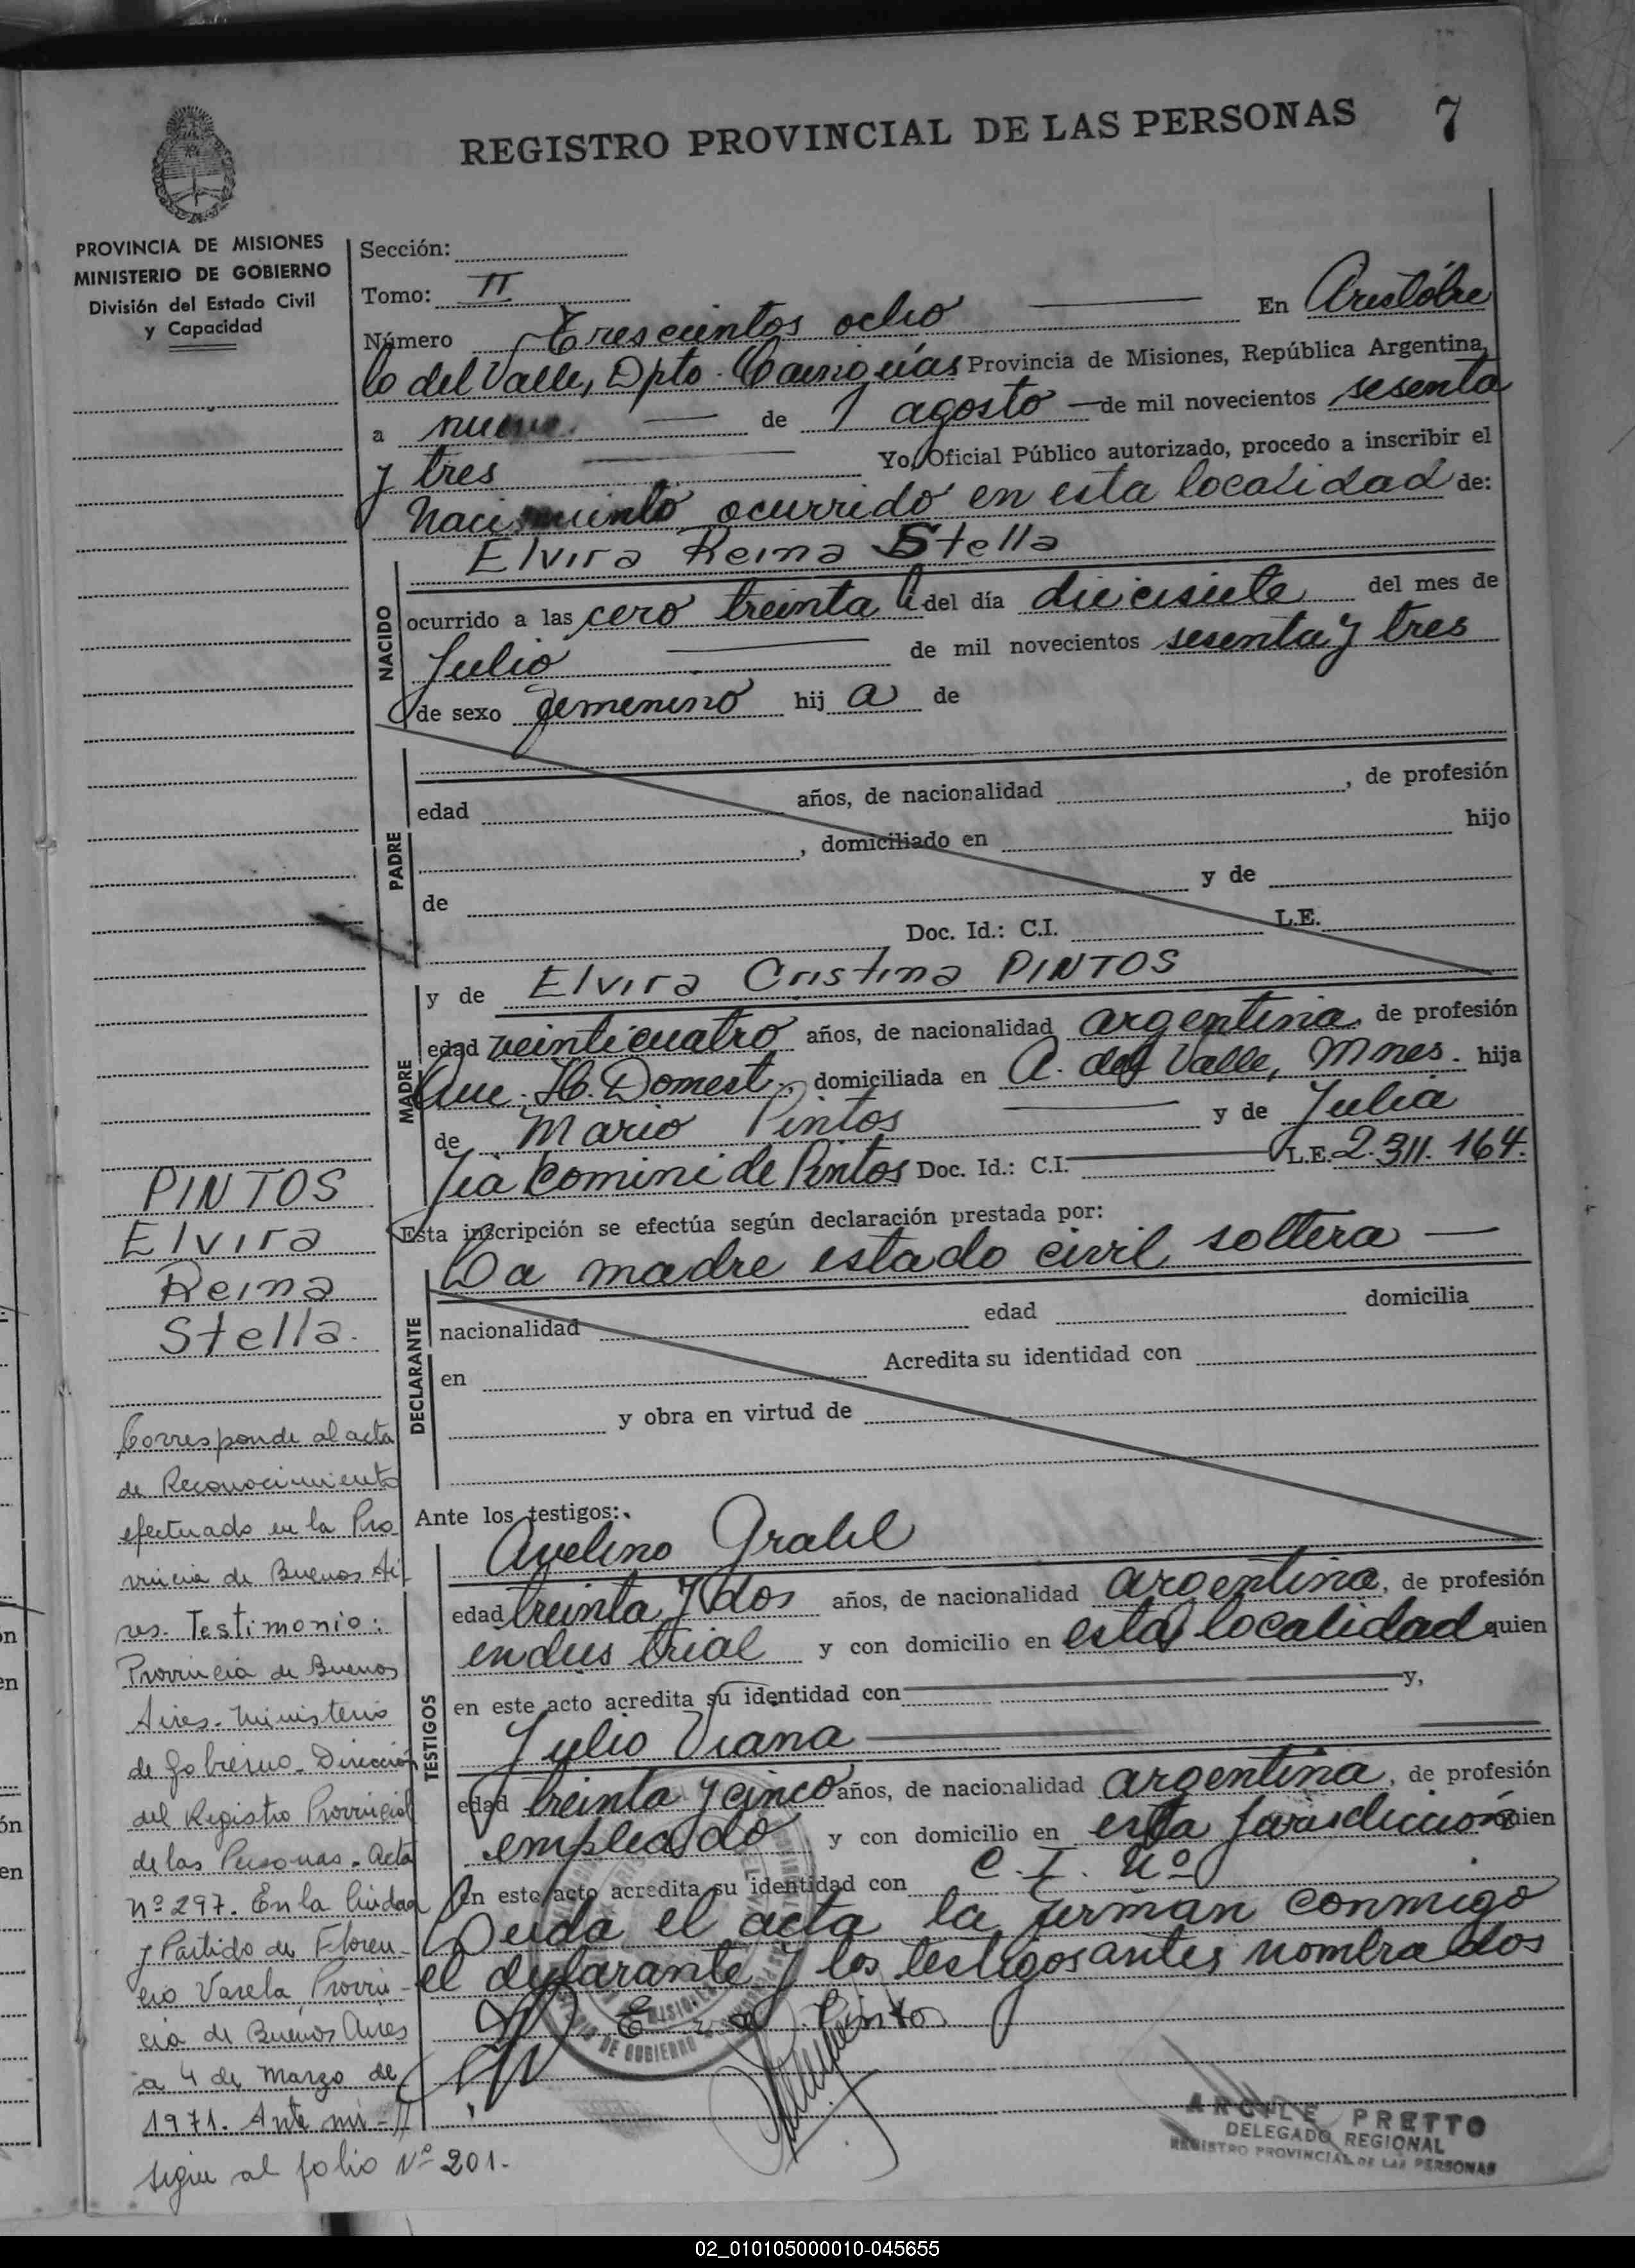 REGISTRO PROVINCIAL DE LAS PERSONAS
7
PROVINCIA DE MISIONES
MINISTERIO DE GOBIERNO
División del Estado Civil
y Capacidad
Sección:
Tomo: II
Número Trescientos ocho En Aristóbu
lo del Valle, Dpto. Cainguás Provincia de Misiones, República Argentina,
a nueve de agosto de mil novecientos sesenta
y tres Yo, Oficial Público autorizado, procedo a inscribir el
Nacimiento ocurrido en esta localidad de:
Elvira Reina Stella
NACIDO
ocurrido a las cero treinta del día diecisiete del mes de
Julio de mil novecientos sesenta y tres
de sexo femenino hija de
PADRE
edad años, de nacionalidad , de profesión
, domiciliado en hijo
de y de
Doc. Id.: C.I. L.E.
MADRE
y de Elvira Cristina PINTOS
edad veinticuatro años, de nacionalidad argentina, de profesión
Que. H. Domest., domiciliada en A. del Valle, Mnes. hija
de Mario Pintos y de Julia
Comini de Pintos Doc. Id.: C.I. L.E. 2.311.164.
Esta inscripción se efectúa según declaración prestada por:
La madre estado civil soltera
DECLARANTE
nacionalidad edad domicilia
en Acredita su identidad con
y obra en virtud de
Ante los testigos:
TESTIGOS
Avelino Grahl
edad treinta y dos años, de nacionalidad argentina, de profesión
industrial y con domicilio en esta localidad quien
en este acto acredita su identidad con y,
Julio Viana
edad treinta y cinco años, de nacionalidad argentina, de profesión
empleado y con domicilio en esta jurisdicción quien
en este acto acredita su identidad con C. I. Nº
Leida el acta la firman conmigo
el declarante y los testigos antes nombrados
Pintos
PRETTO
DELEGADO REGIONAL
REGISTRO PROVINCIAL DE LAS PERSONAS
PINTOS
Elvira
Reina
Stella.
Corresponde al acta
de Reconocimiento
efectuado en la Pro
vincia de Buenos Ai
res. Testimonio:
Provincia de Buenos
Aires. Ministerio
de Gobierno. Dirección
del Registro Provincial
de las Personas. Acta
nº 297. En la Ciudad
y Partido de Floren-
cio Varela, Provin-
cia de Buenos Aires
a 4 de Marzo de
1971. Ante mi -//
sigue al folio Nº 201.
02_010105000010-045655